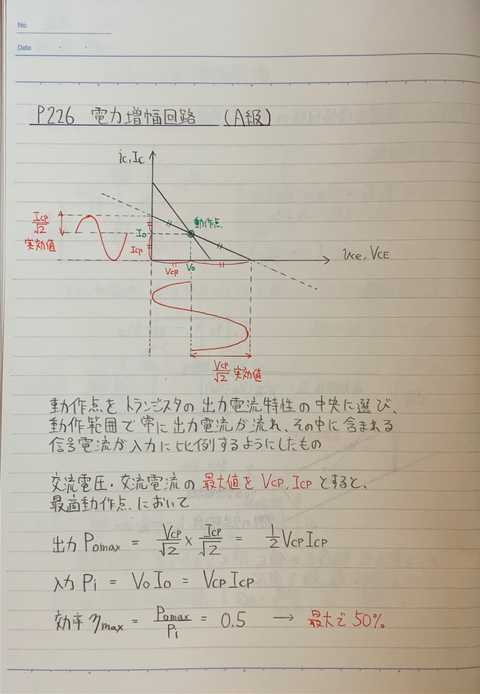 No.
Date
P226 電力増幅回路 (A級)
ic, Ic
Icp/√2
実効値
Io
Icp
動作点
Vcp
Vo
vce, VCE
Vcp/√2 実効値
動作点をトランジスタの出力電流特性の中央に選び、
動作範囲で常に出力電流が流れ、その中に含まれる
信号電流が入力に比例するようにしたもの
交流電圧・交流電流の最大値をVcp, Icpとすると、
最適動作点において
出力 Pomax = Vcp/√2 × Icp/√2 = 1/2 Vcp Icp
入力 Pi = Vo Io = Vcp Icp
効率 ηmax = Pomax/Pi = 0.5 → 最大で50%